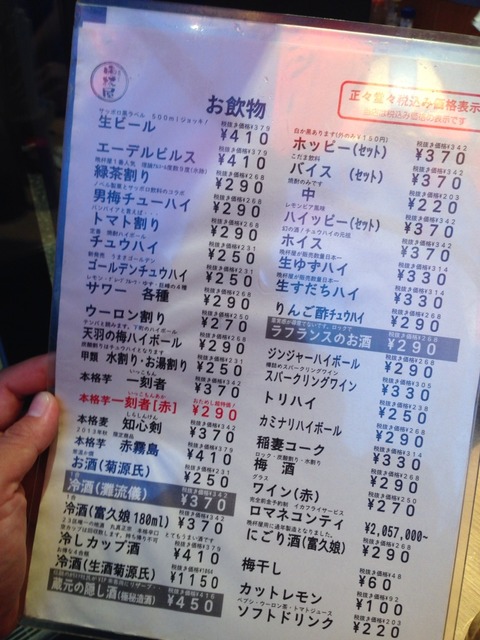 お飲物
正々堂々税込み価格表示
サッポロ黒ラベル 500mlジョッキ!
生ビール
税抜き価格¥379
¥410
エーデルピルス
税抜き価格¥379
¥410
緑茶割り
税抜き価格¥268
¥290
ノベル製菓とサッポロ砂料のコラボ
男梅チューハイ
税抜き価格¥268
¥290
トマト割り
税抜き価格¥268
¥290
チュウハイ
税抜き価格¥231
¥250
ゴールデンチュウハイ
税抜き価格¥231
¥250
サワー 各種
税抜き価格¥268
¥290
ウーロン割り
税抜き価格¥250
¥270
天羽の梅ハイボール
税抜き価格¥268
¥290
甲類 水割り・お湯割り
税抜き価格¥231
¥250
本格芋 一刻者
税抜き価格¥342
¥370
本格芋 一刻者[赤]
おためし超特価!
¥290
本格麦 知心剣
税抜き価格¥342
¥370
2013年秋 限定商品
本格芋 赤霧島
¥410
お酒(菊源氏)
税抜き価格¥231
¥250
冷酒(灘流儀)
税抜き価格¥342
¥370
冷酒(富久娘180ml)
税抜き価格¥342
¥370
冷しカップ酒
税抜き価格¥379
¥410
冷酒(生酒菊源氏)
¥1150
蔵元の隠し酒(極秘造酒)
税抜き価格¥416
¥450
白か黒あります(外のみ¥150円)
ホッピー(セット)
税抜き価格¥342
¥370
こだま飲料
バイス (セット)
税抜き価格¥342
¥370
焼酎のみです
中
税抜き価格¥203
¥220
レモンビア風味
ハイッピー(セット)
税抜き価格¥342
¥370
幻の酒!チュウハイの元祖
ホイス
税抜き価格¥314
¥340
晩杯屋が販売数量日本一
生ゆずハイ
¥330
晩杯屋が販売数量日本一
生すだちハイ
¥330
りんご酢チュウハイ
税抜き価格¥268
¥290
ラフランスのお酒
税抜き価格¥268
¥290
ジンジャーハイボール
税抜き価格¥268
¥290
スパークリングワイン
税抜き価格¥305
¥330
トリハイ
¥250
カミナリハイボール
税抜き価格¥268
¥290
稲妻コーク
¥330
ロック・炭酸割り・水割り
梅 酒
税抜き価格¥268
¥290
グラス
ワイン(赤)
税抜き価格¥250
¥270
ロマネコンティ
¥2,057,000~
にごり酒(富久娘)
税抜き価格¥268
¥290
梅干し
¥60
カットレモン
税抜き価格¥92
¥100
ペプシ・ウーロン茶・トマトジュース
ソフトドリンク
税抜き価格¥203
¥220